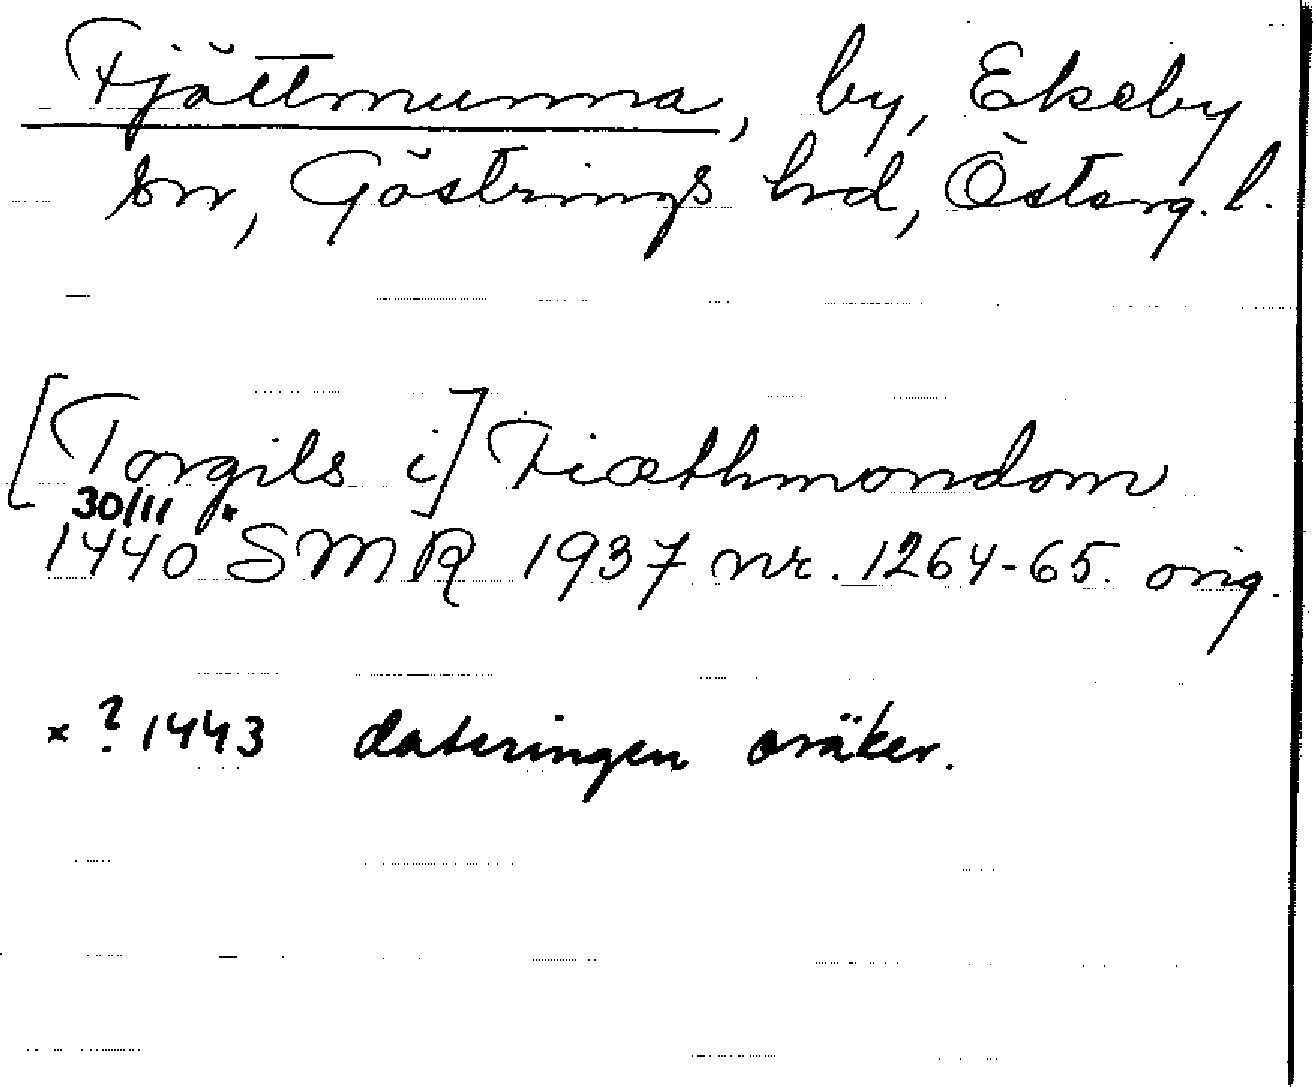 Fjättmunna, by, Ekeby
sn, Göstrings hd, Österg. l.
[Torgils i] Fiæthmondom
30/11 *
1440 SMR 1937 nr. 1264-65. orig.
× ? 1443 dateringen osäker.